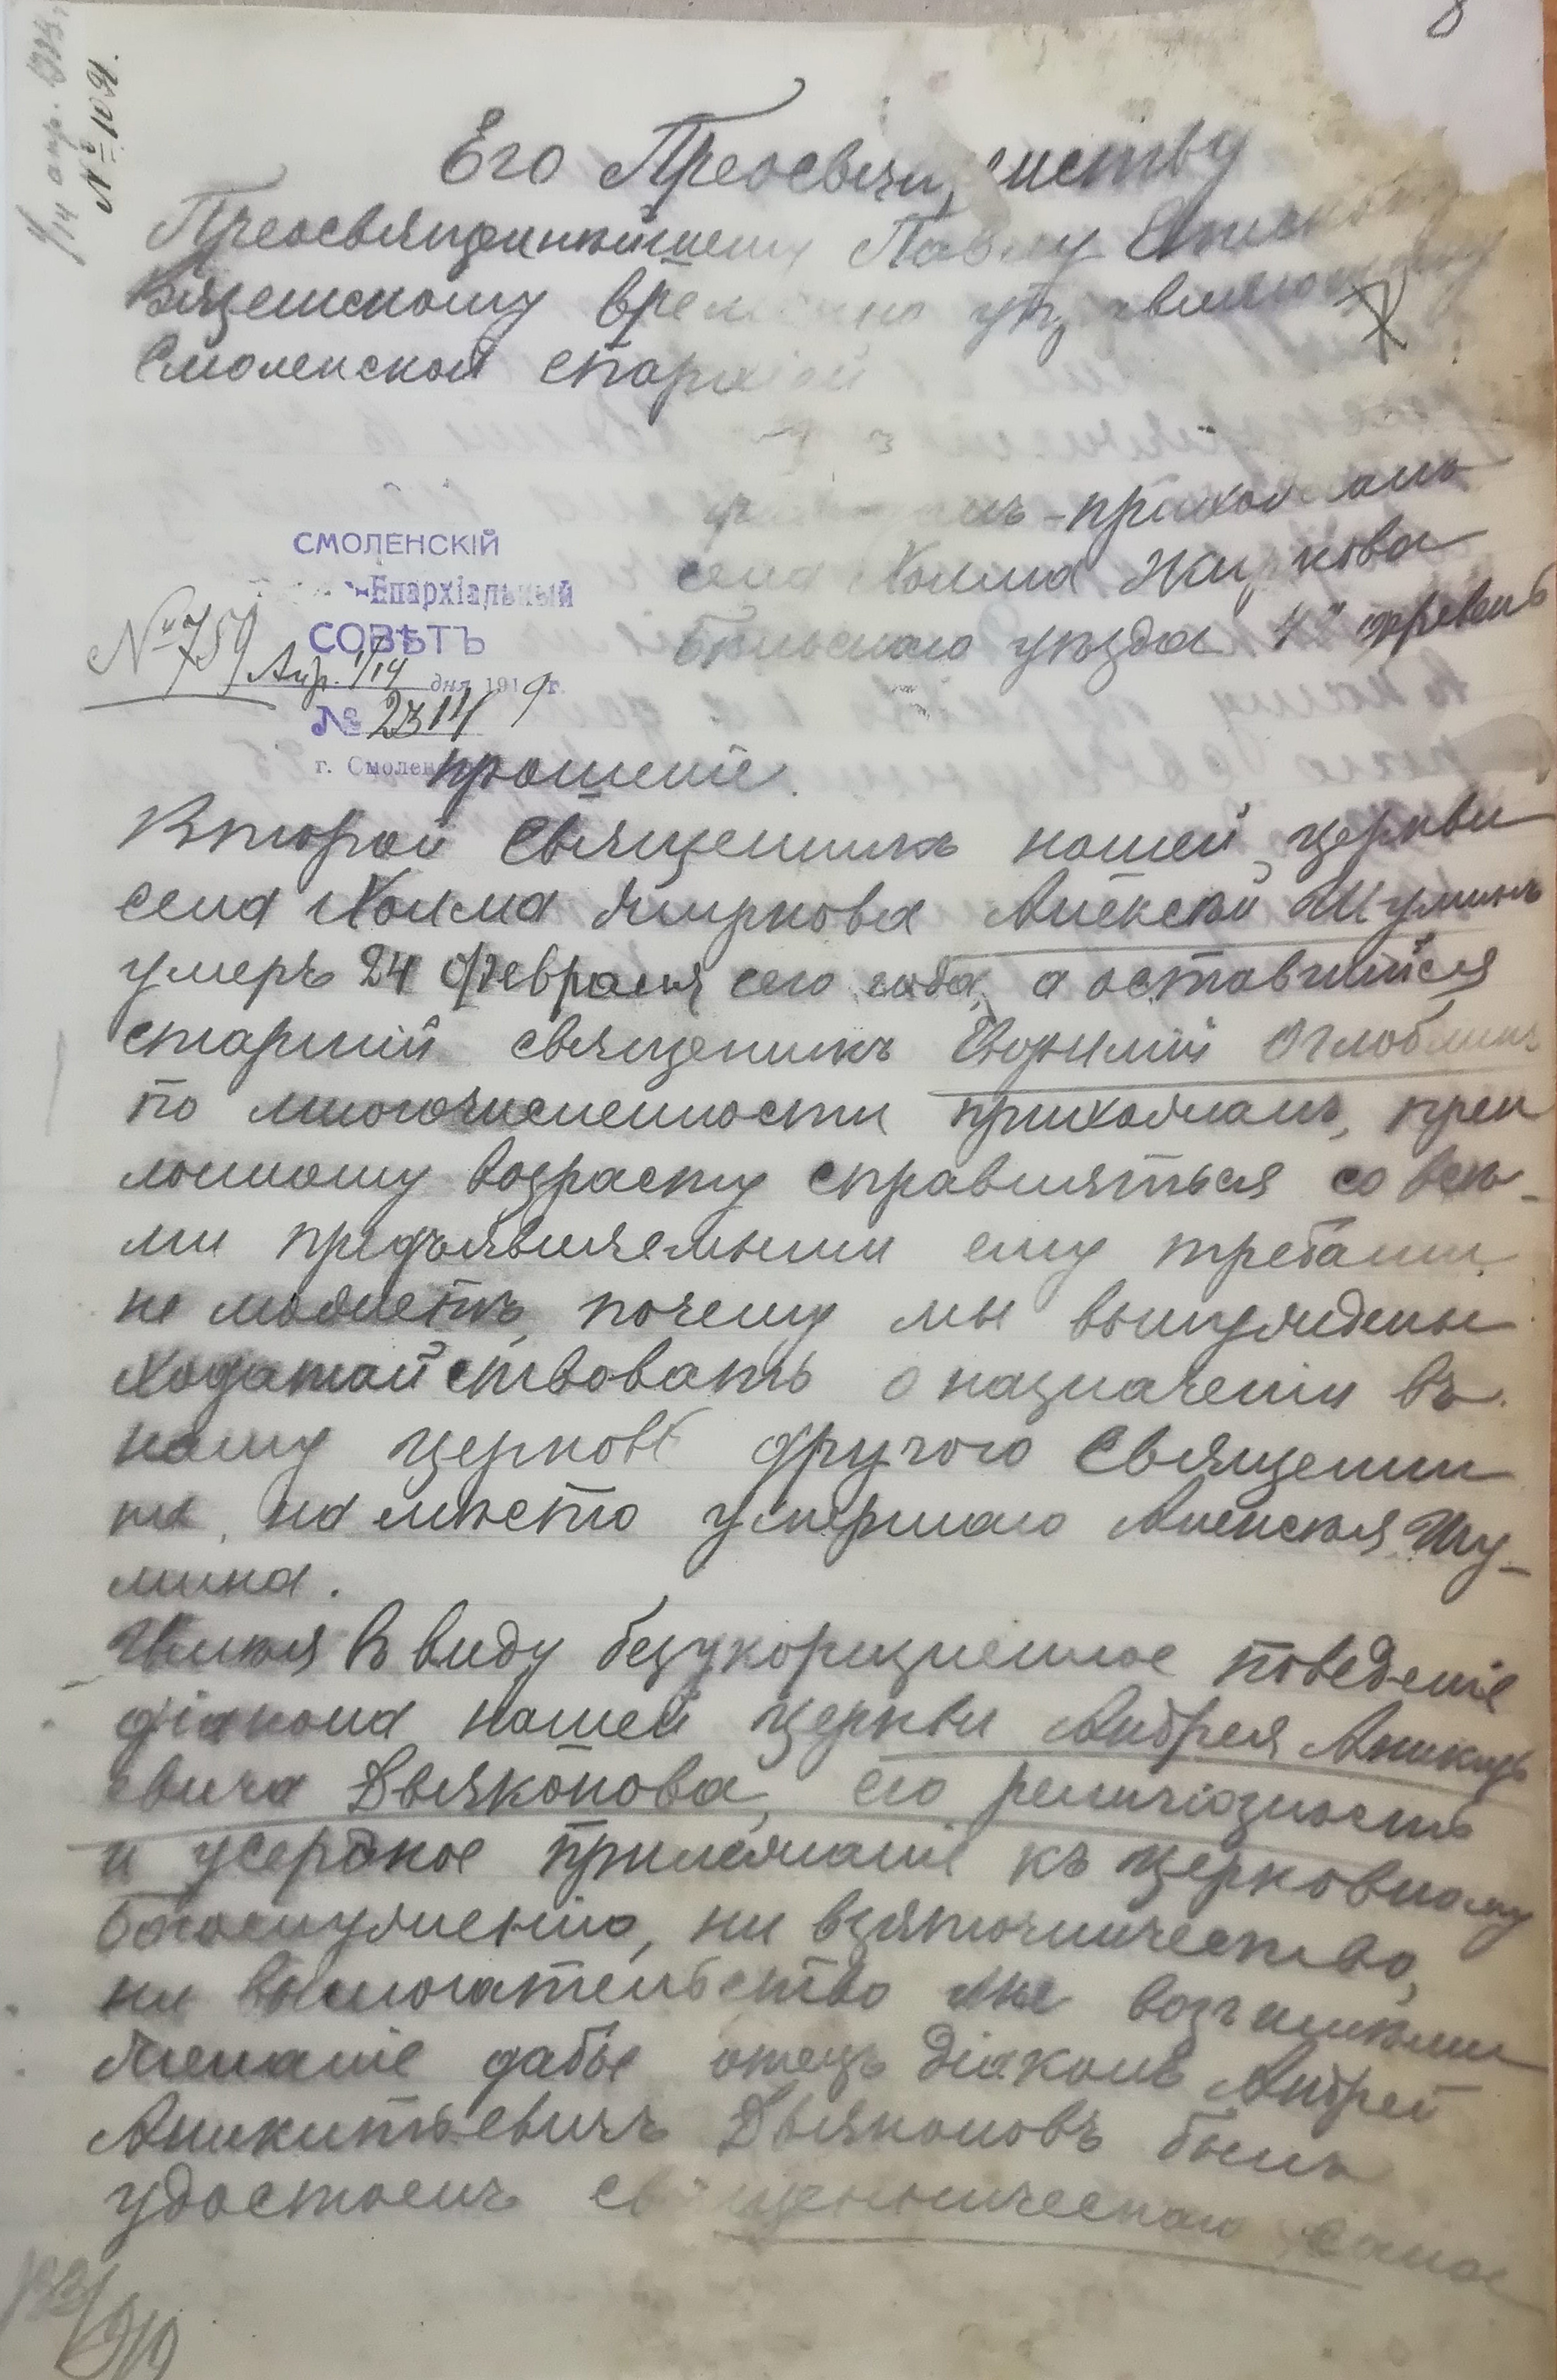 8
1/14 апр. 1919.
№ 1091.
Его Преосвященству
Преосвященнѣйшему Павлу Епископу
Вяземскому временно управляющему
Смоленской епархіей
гражданъ-прихожанъ
села Холма Жиркова
Бѣльскаго уѣзда 42 деревень
СМОЛЕНСКІЙ
Епархіальный
СОВѢТЪ
№ 759
Апр. 1/14 дня 1919 г.
№ 2314
г. Смоленскъ
прошеніе.
Второй Священникъ нашей церкви
села Холма Жиркова Алексѣй Шуминъ
умеръ 24 февраля сего года, а оставшійся
старшій священикъ Евфимій Оглоблинъ
по многочисленности прихожанъ, прек
лонному возрасту справляться со всѣ-
ми предъявляемыми ему требами
не можетъ, почему мы вынуждены
ходатайствовать о назначеніи въ
нашу церковь другого Священни
ка, на мѣсто умершаго Алексѣя Шу-
мина.
Имѣя въ виду безукоризненное поведеніе
діакона нашей церкви Андрея Аникить
евича Дьяконова, его религіозность
и усердное прилежаніе къ церковному
богослуженію, ни взяточничество,
ни вымогательство мы возъимѣли
желаніе дабы отецъ діаконъ Андрей
Аникитьевичъ Дьяконовъ былъ
удостоенъ священническаго сана